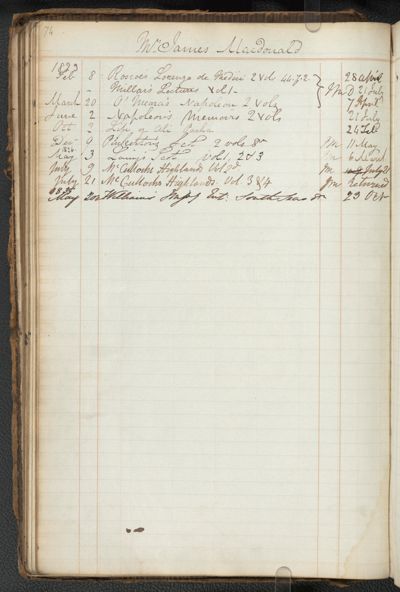 74
Mr James Macdonald
1823
Feb 8 Roscoes Lorenzo de Medici 2 Vols 28 april
" Millars Lectures Vol 1 JMD 21 July
March 20 O'Meara's Napoleon 2 Vols 7 April
June 2 Napoleon's Memoirs 2 vols 21 July
Oct 2 Life of Ali Pacha 24 Feb
Dec 9 2 vols 8vo Jm 11 May
May 3 Vol 1, 2 & 3 Jm
July 9 McCullochs Highlands Vol Jm July 21
July 21 McCullochs Highlands Vol 3 & 4 Jm Returned
May 20 Williams South Seas 23 Oct